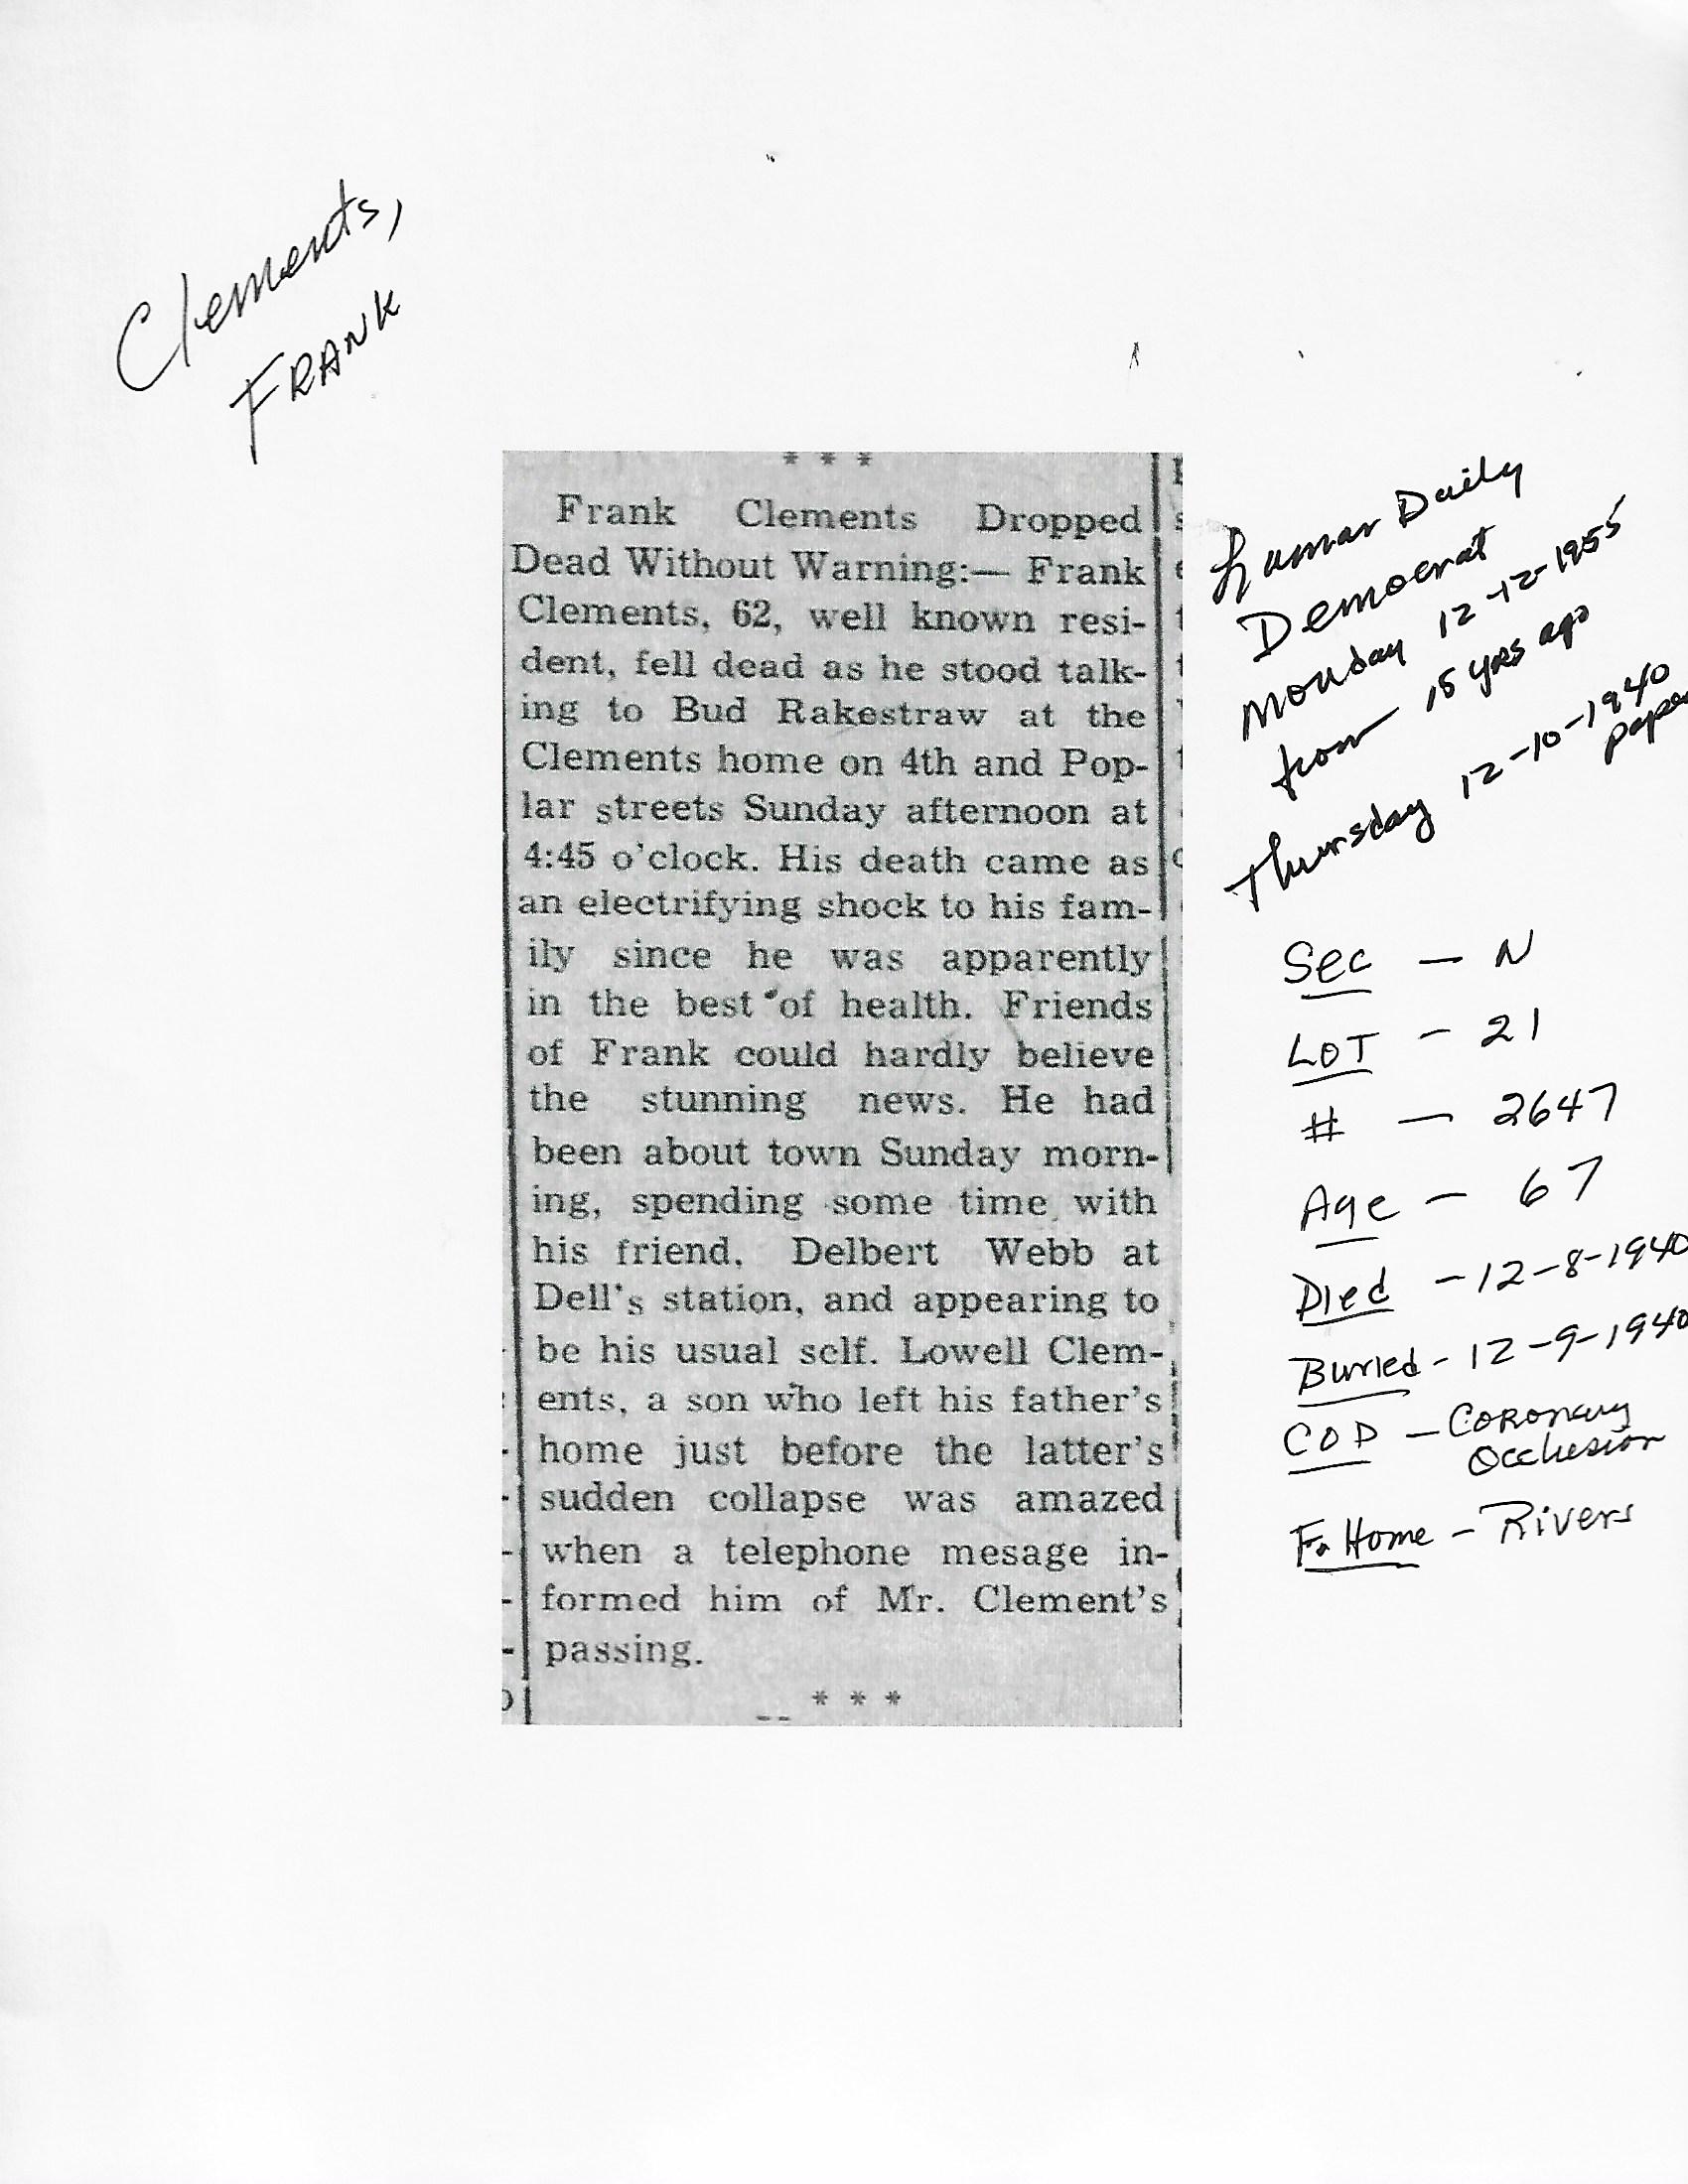 Clements,
FRANK
* * *
Frank Clements Dropped
Dead Without Warning:— Frank
Clements, 62, well known resi-
dent, fell dead as he stood talk-
ing to Bud Rakestraw at the
Clements home on 4th and Pop-
lar streets Sunday afternoon at
4:45 o'clock. His death came as
an electrifying shock to his fam-
ily since he was apparently
in the best of health. Friends
of Frank could hardly believe
the stunning news. He had
been about town Sunday morn-
ing, spending some time with
his friend, Delbert Webb at
Dell's station, and appearing to
be his usual self. Lowell Clem-
ents, a son who left his father's
home just before the latter's
sudden collapse was amazed
when a telephone mesage in-
formed him of Mr. Clement's
passing.
* * *
Lamar Daily
Democrat
Monday 12-12-1955
from 15 yrs ago
Thursday 12-10-1940
paper
Sec — N
LOT - 21
# — 2647
Age - 67
Died - 12-8-1940
Buried - 12-9-1940
COD - Coronary
Occlusion
F. Home - Rivers